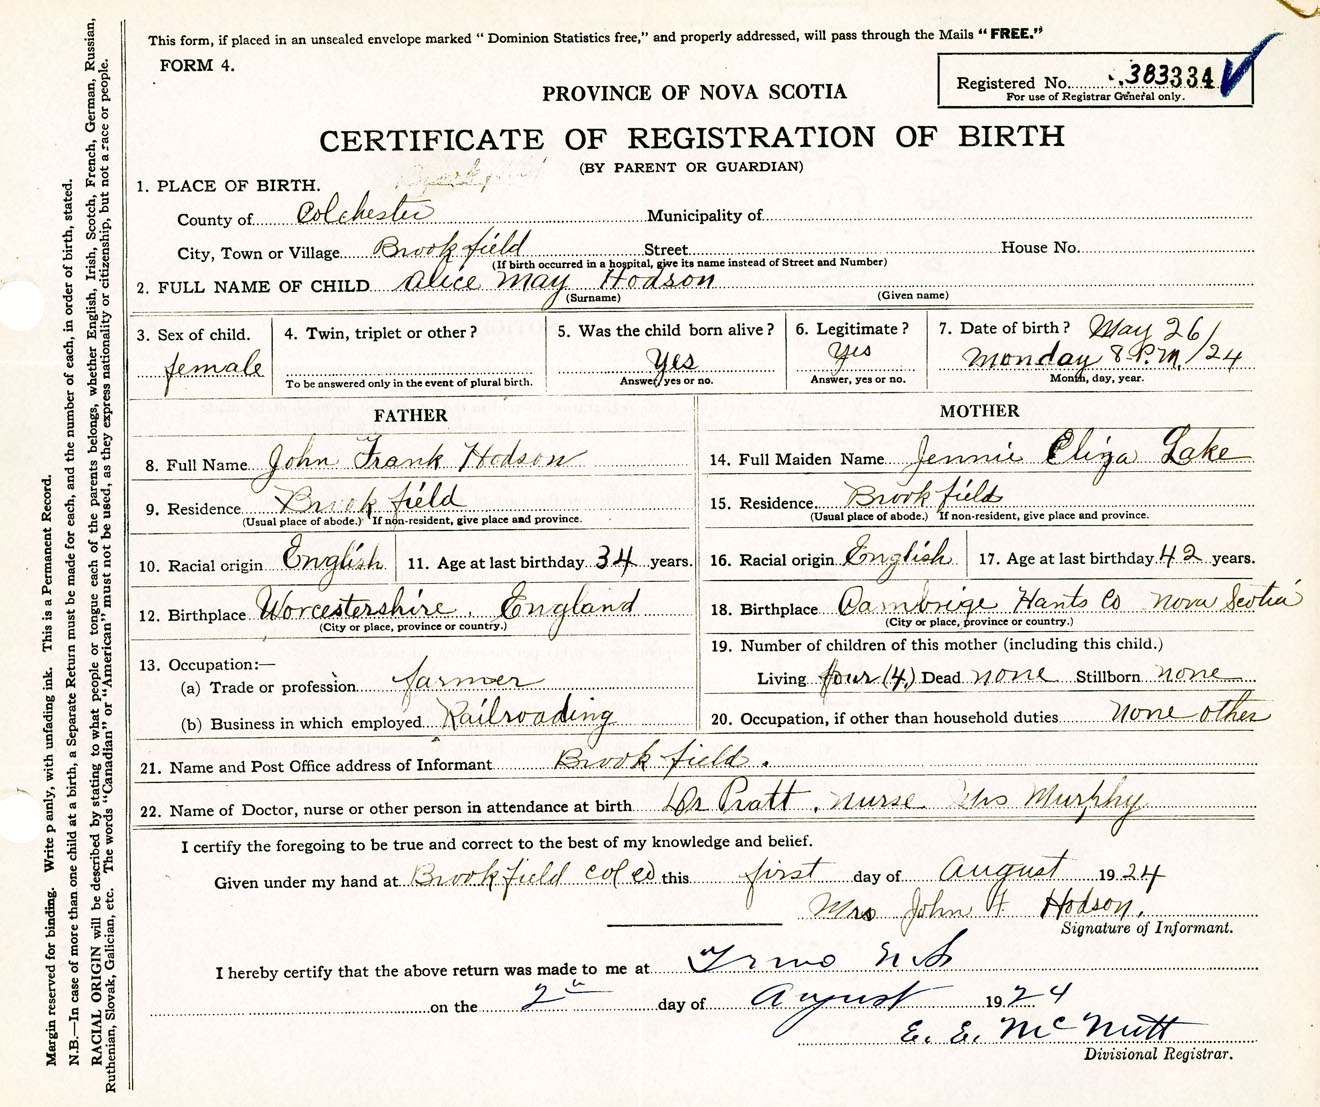 This form, if placed in an unsealed envelope marked " Dominion Statistics free," and properly addressed, will pass through the Mails " FREE."
FORM 4.
Registered No. 383334
For use of Registrar General only.
PROVINCE OF NOVA SCOTIA
CERTIFICATE OF REGISTRATION OF BIRTH
(BY PARENT OR GUARDIAN)
1. PLACE OF BIRTH.
County of Colchester Municipality of
City, Town or Village Brookfield Street House No.
(If birth occurred in a hospital, give its name instead of Street and Number)
2. FULL NAME OF CHILD Alice May Hodson
(Surname) (Given name)
3. Sex of child. female
4. Twin, triplet or other ?
To be answered only in the event of plural birth.
5. Was the child born alive ? Yes
Answer, yes or no.
6. Legitimate ? Yes
Answer, yes or no.
7. Date of birth ? May 26/
Monday 8 P.M. /24
Month, day, year.
FATHER
8. Full Name John Frank Hodson
9. Residence Brookfield
(Usual place of abode.) If non-resident, give place and province.
10. Racial origin English 11. Age at last birthday 34 years.
12. Birthplace Worcestershire, England
(City or place, province or country.)
13. Occupation:—
(a) Trade or profession farmer
(b) Business in which employed Railroading
MOTHER
14. Full Maiden Name Jennie Eliza Lake
15. Residence Brookfield
(Usual place of abode.) If non-resident, give place and province.
16. Racial origin English 17. Age at last birthday 42 years.
18. Birthplace Cambrige Hants Co Nova Scotia
(City or place, province or country.)
19. Number of children of this mother (including this child.)
Living four (4) Dead none Stillborn none
20. Occupation, if other than household duties none other
21. Name and Post Office address of Informant Brookfield.
22. Name of Doctor, nurse or other person in attendance at birth Dr Pratt, nurse Mrs Murphy
I certify the foregoing to be true and correct to the best of my knowledge and belief.
Given under my hand at Brookfield Col Co this first day of August 1924
Mrs John F Hodson.
Signature of Informant.
I hereby certify that the above return was made to me at Truro N S
on the 2" day of August 1924
E. E. McNutt
Divisional Registrar.
Margin reserved for binding. Write p anly, with unfading ink. This is a Permanent Record.
N.B.—In case of more than one child at a birth, a Separate Return must be made for each, and the number of each, in order of birth, stated.
RACIAL ORIGIN will be described by stating to what people or tongue each of the parents belongs, whether English, Irish, Scotch, French, German, Russian,
Ruthenian, Slovak, Galician, etc. The words "Canadian" or "American" must not be used, as they express nationality or citizenship, but not a race or people.